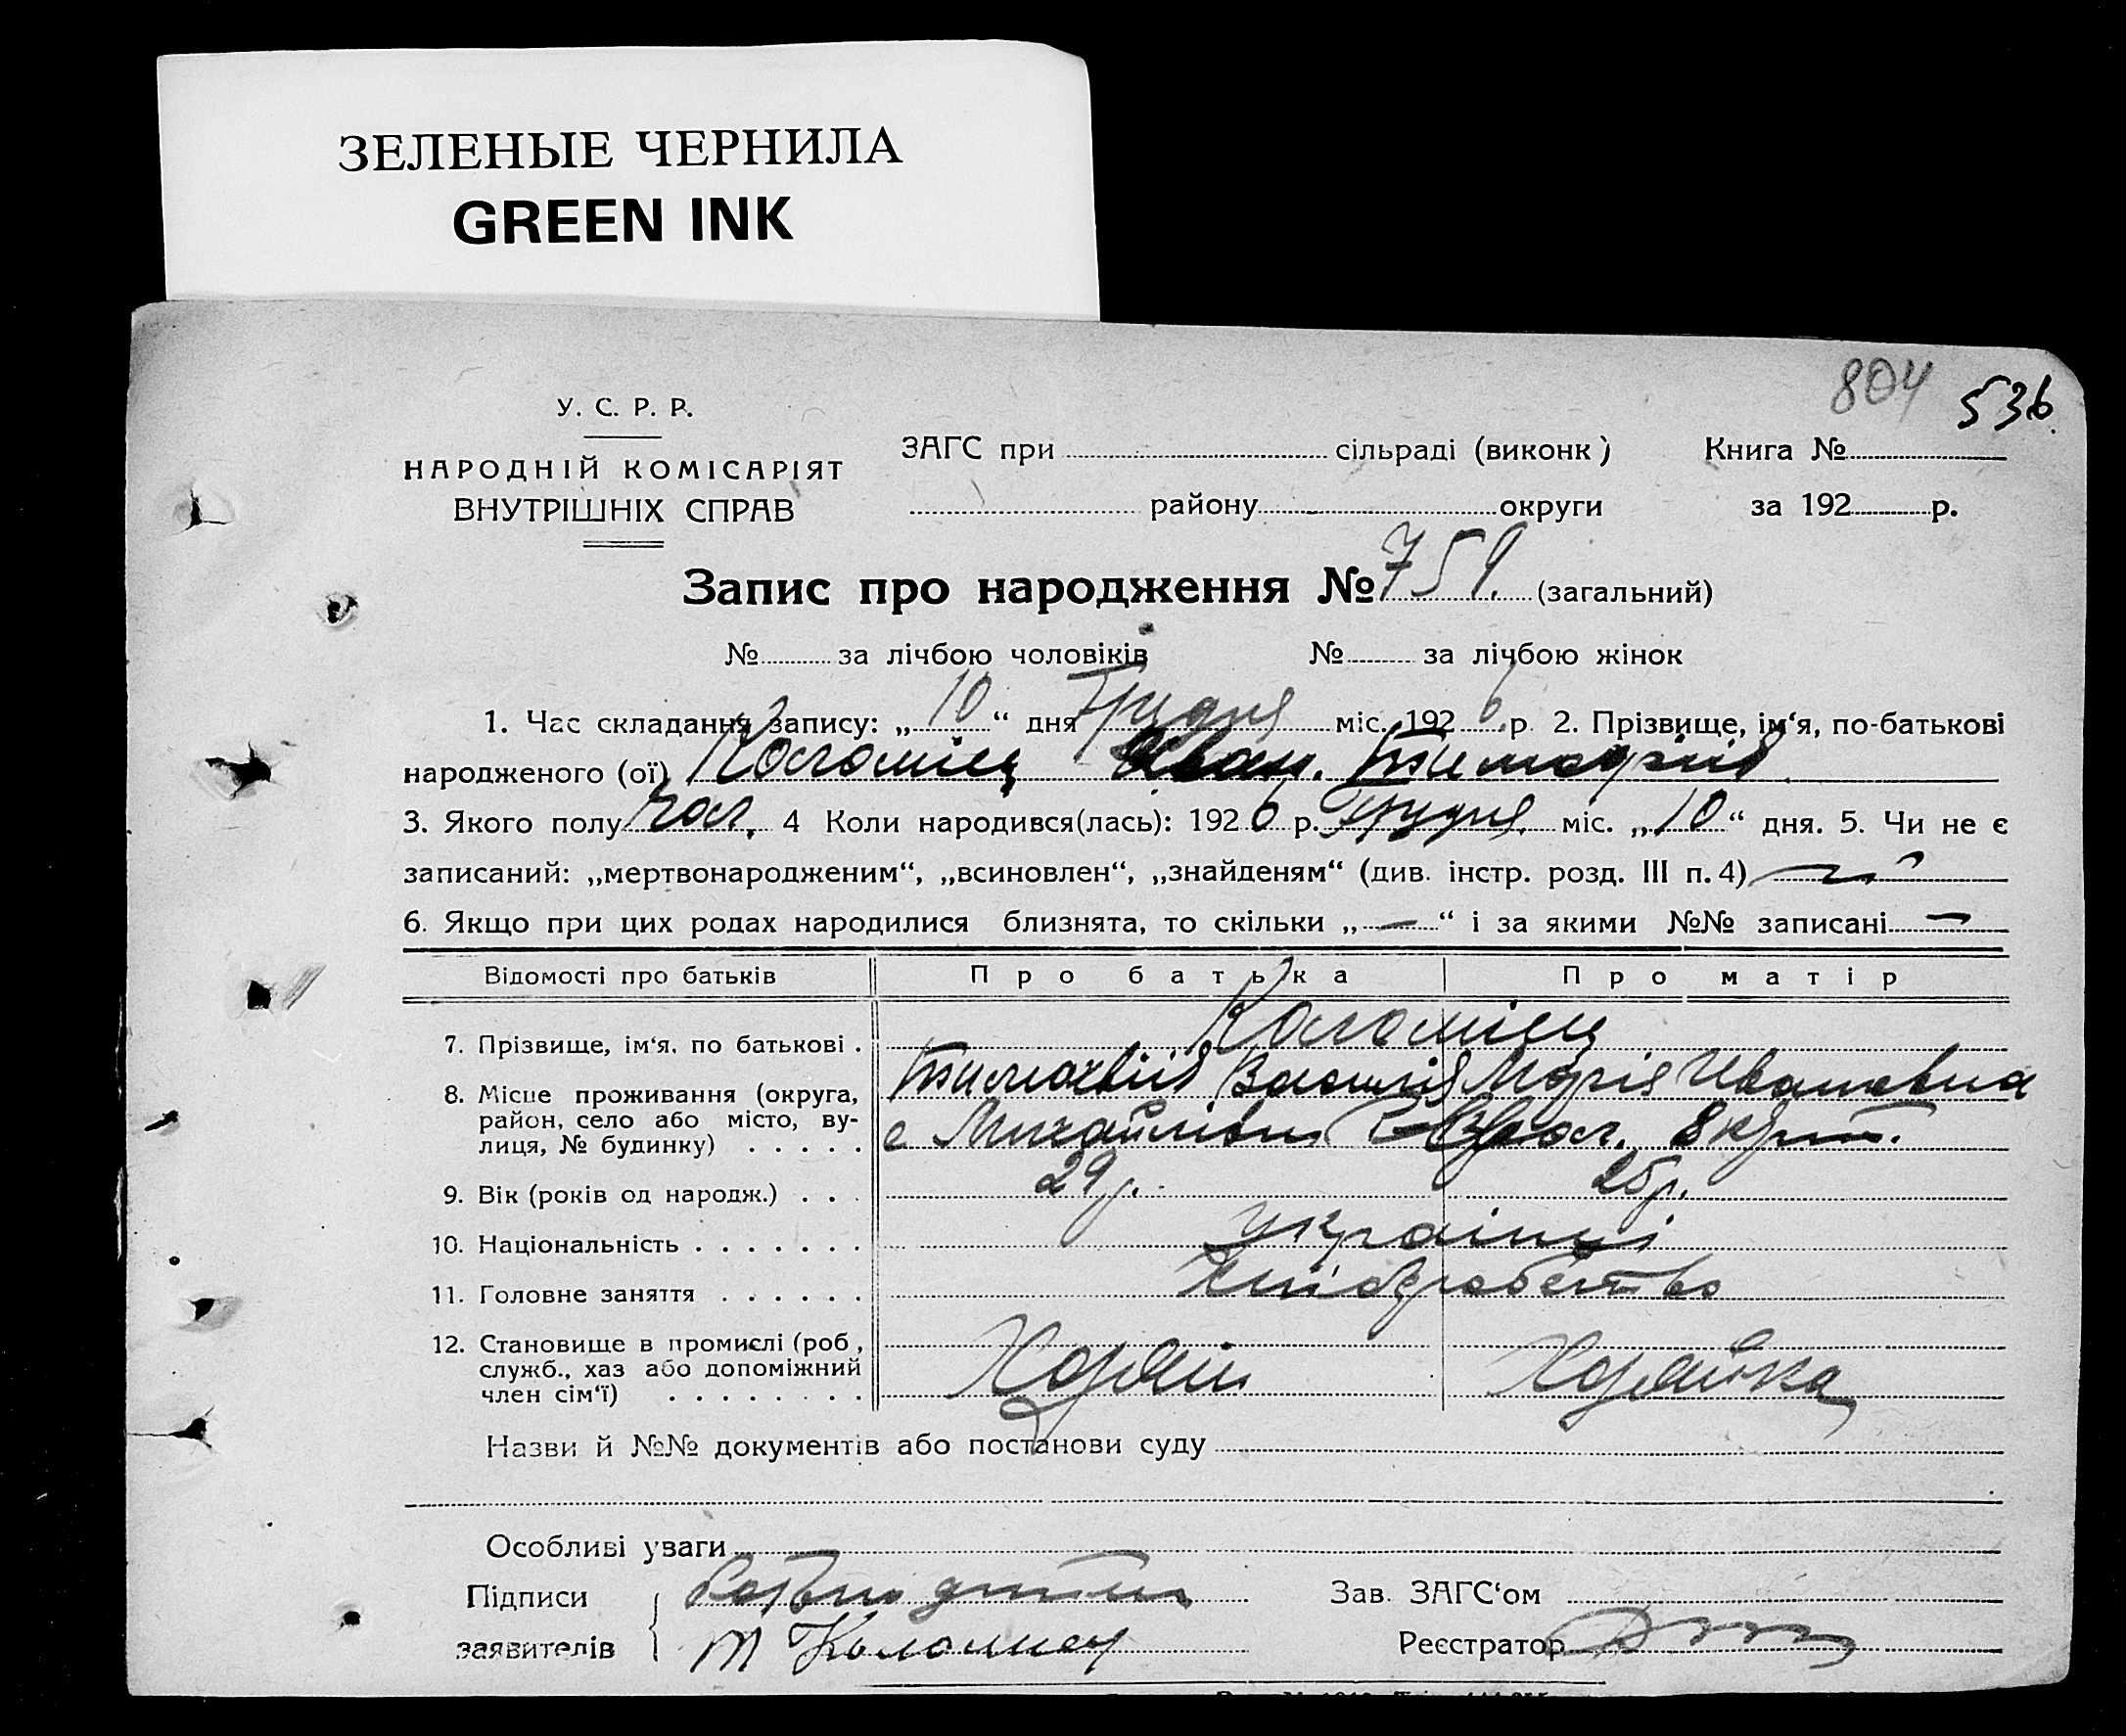 ЗЕЛЕНЫЕ ЧЕРНИЛА
GREEN INK
804 536
У. С. Р. Р.
НАРОДНІЙ КОМІСАРІЯТ
ВНУТРІШНІХ СПРАВ
ЗАГС при сільраді (виконк) Книга №
району округи за 192 р.
Запис про народження № 759. (загальний)
№ за лічбою чоловіків № за лічбою жінок
1. Час складання запису: „10“ дня Грудня міс. 1926 р. 2. Прізвище, ім‘я, по-батькові
народженого (ої) Коломієц Иван.
3. Якого полу чол. 4 Коли народився(лась): 1926 р. Грудня міс. „10“ дня. 5. Чи не є
записаний: „мертвонародженим“, „всиновлен“, „знайденям“ (див. інстр. розд. III п. 4)
6. Якщо при цих родах народилися близнята, то скільки „—“ і за якими №№ записані —
Відомості про батьків Про батька Про матір
7. Прізвище, ім‘я, по батькові . Коломієц
Василів Марія Ивановна
8. Місце проживання (округа,
район, село або місто, ву-
лиця, № будинку) . . . . . с Михайлівка
9. Вік (років од народж.) . . . 29 р. 25 р.
10. Національність . . . . . . . українці
11. Головне заняття . . . . . . хліборобство
12. Становище в промислі (роб.,
служб., хаз або допоміжний
член сім‘ї) . . . . . . . . Хозяїн Хозяйка
Назви й №№ документів або постанови суду
Особливі уваги
Підписи батько дитини Зав. ЗАГС‘ом
заявителів Т Коломиец Реєстратор